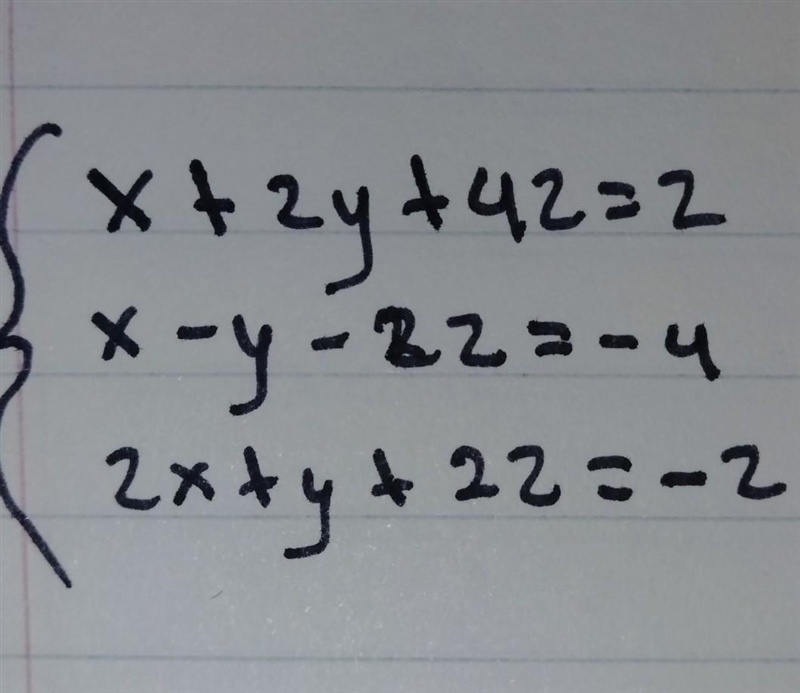 x + 2y + 4z = 2
x - y - 2z = - 4
2x + y + 2z = - 2